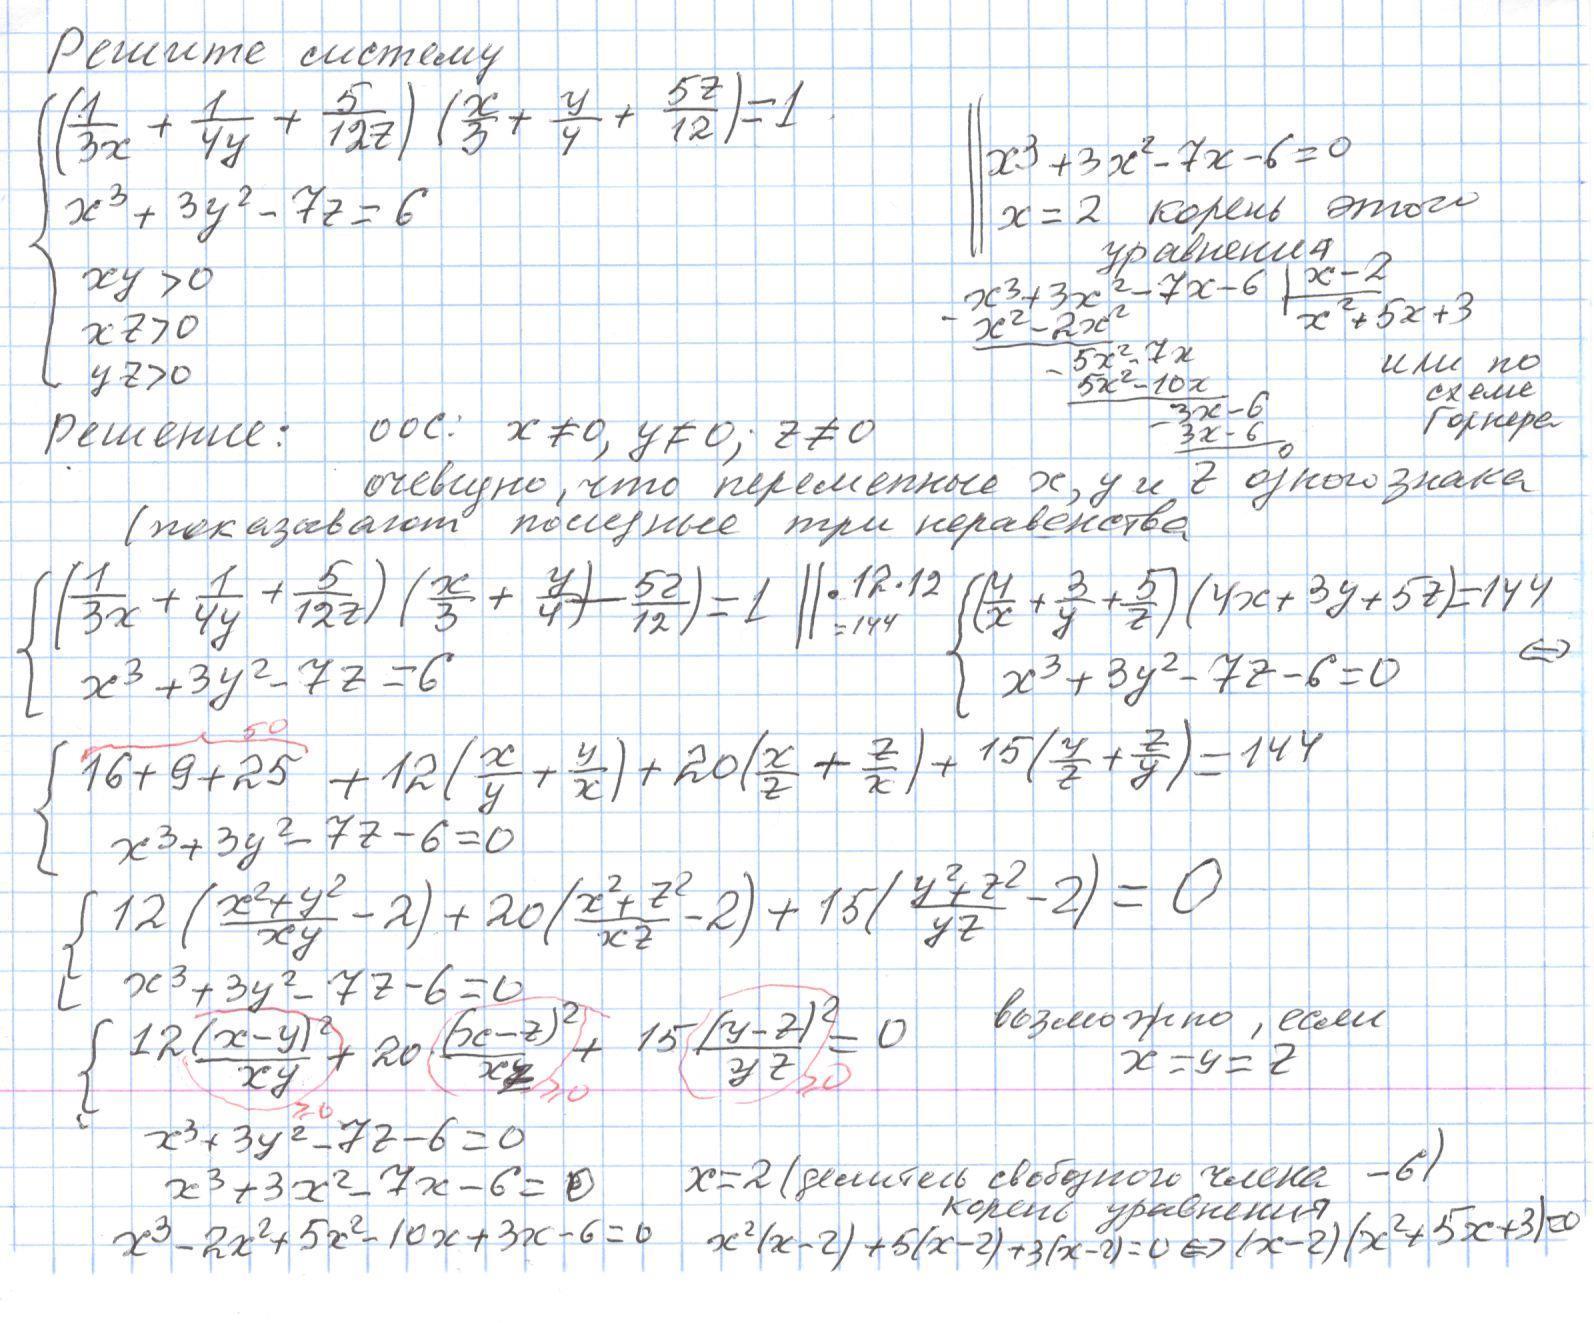 Решите систему
(1/3x + 1/4y + 5/12z) (x/3 + y/4 + 5z/12) = 1
x³ + 3y² - 7z = 6
xy > 0
xz > 0
yz > 0
x³ + 3x² - 7x - 6 = 0
x = 2 корень этого
уравнения
x³ + 3x² - 7x - 6 | x - 2
- x² - 2x² x² + 5x + 3
- 5x² - 7x
5x² - 10x
- 3x - 6
3x - 6
0
или по
схеме
Горнера
Решение: ООС: x ≠ 0, y ≠ 0; z ≠ 0
очевидно, что переменные x, y и z одного знака
(показывают последные три неравенства
(1/3x + 1/4y + 5/12z) (x/3 + y/4) - 5z/12) = 1 || · 12 · 12
= 144
x³ + 3y² - 7z = 6
(4/x + 3/y + 5/z) (4x + 3y + 5z) = 144
x³ + 3y² - 7z - 6 = 0 ⇔
50
16 + 9 + 25 + 12(x/y + y/x) + 20(x/z + z/x) + 15(y/z + z/y) = 144
x³ + 3y² - 7z - 6 = 0
12 (x² + y²/xy - 2) + 20(x² + z²/xz - 2) + 15(y² + z²/yz - 2) = 0
x³ + 3y² - 7z - 6 = 0
12 (x - y)²/xy + 20 · (x - z)²/xz + 15 (y - z)²/yz = 0
≥0 ≥0 ≥0
возможно, если
x = y = z
x³ + 3y² - 7z - 6 = 0
x³ + 3x² - 7x - 6 = 0 x = 2 (делитель свободного члена -6)
корень уравнения
x³ - 2x² + 5x² - 10x + 3x - 6 = 0 x²(x - 2) + 5(x - 2) + 3(x - 2) = 0 ⇔ (x - 2)(x² + 5x + 3) = 0